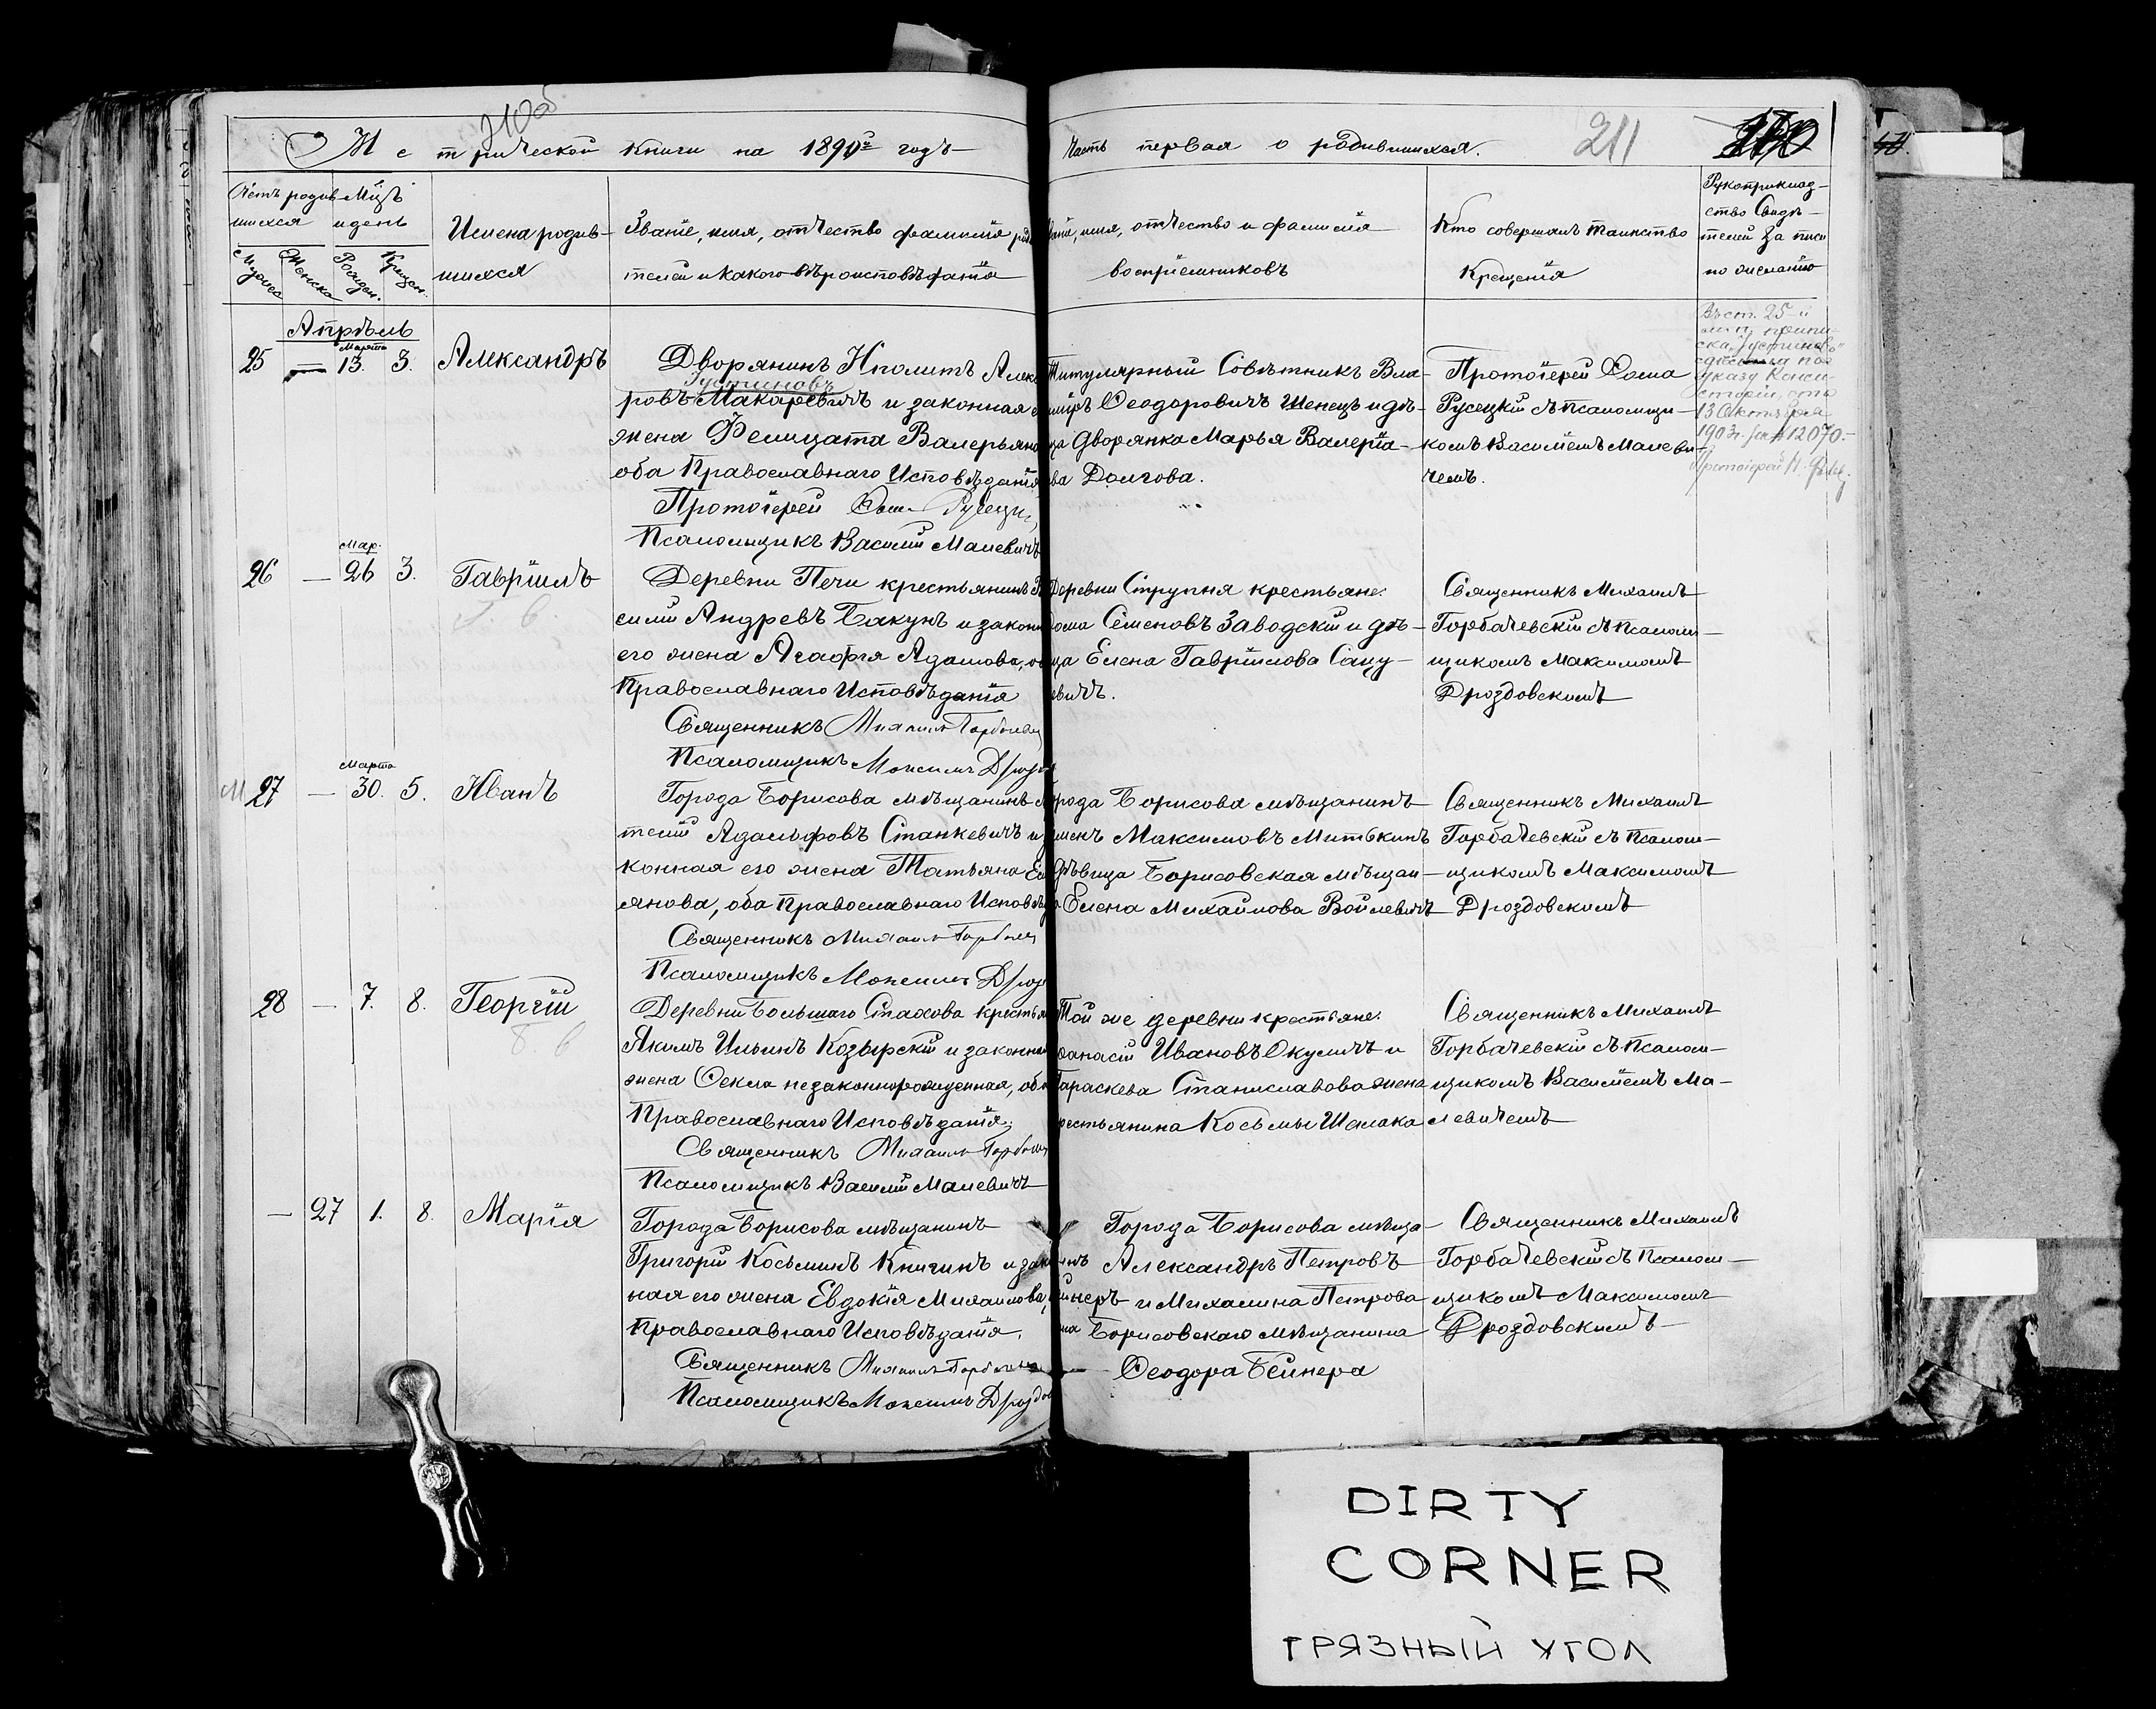 210об
Метрической книги на 1890й годъ
Часть первая о родившихся.
211
Счетъ родив- Мцъ
шихся и день
Имена родив-
шихся
Званіе, имя, отчество фамилія роди
телей и какого вѣроисповѣданія
Званіе, имя, отчество и фамилія
воспріемниковъ
Кто совершалъ таинство
Крещенія
Рукоприклад-
ство Свидѣ-
телей записи
по желанію
Апрѣль
25 — Марта 13. 3. Александръ
Дворянинъ Иполитъ Алекс
Густиновъ
ровъ Макаревичъ и законная
жена Фелицата Валерьяно
оба Православнаго Исповѣданія
Протоіерей Ѳома Русецкі
Псаломщикъ Василій Малевичъ
Титулярный Совѣтникъ Вла-
диміръ Ѳеодоровичъ Шенецъ и дѣ-
вица дворянка Марья Валерія-
нова Долгова.
Протоіерей Ѳома
Русецкій съ псаломщи-
комъ Василіемъ Малеви-
чемъ.
Въ ст. 25-й
припи-
ска
сдѣлана по
указу Конси-
сторіи, отъ
13 Октября
1903 г. за № 12070.-
Протоіерей
26 — Мар. 26 3. Гавріилъ
Деревни Печи крестьянинъ Ва
силій Андреевъ Бакунъ и законн
его жена Агафія Адамова, об
Православнаго Исповѣданія
Священникъ Михаилъ Горбачев
Псаломщикъ Максимъ Дрозд
Деревни Струпня крестьяне:
Ѳома Семеновъ Заводскій и дѣ-
вица Елена Гавріилова Сацу-
евичъ.
Священникъ Михаилъ
Горбачевскій съ Псалом-
щикомъ Максимомъ
Дроздовскимъ
27 — Марта 30. 5. Иванъ
Города Борисова мѣщанинъ
телій Адамовъ Станкевичъ и за
конная его жена Татьяна Ем
лянова, оба Православнаго Исповѣд
Священникъ Михаилъ Горбачев
Псаломщикъ Максимъ Дрозд
Города Борисова мѣщанинъ
Максимовъ Митькинъ
дѣвица Борисовская мѣщан-
ка Елена Михайлова Войлевичъ
Священникъ Михаилъ
Горбачевскій съ Псалом-
щикомъ Максимомъ
Дроздовскимъ
28 — 7. 8. Георгій
Деревни Большаго Стахова крестьян
Якимъ Ильинъ Козырскій и законна
жена Ѳекла незаконнорожденная, оба
Православнаго Исповѣданія;
Священникъ Михаилъ Горбачев
Псаломщикъ Василій Малевичъ
Той же деревни крестьяне:
Аѳанасій Ивановъ Окуличъ и
Параскева Станиславова жена
крестьянина Косьмы Шамака
Священникъ Михаилъ
Горбачевскій съ Псалом-
щикомъ Василіемъ Ма-
левичемъ
— 27 1. 8. Марія
Города Борисова мѣщанинъ
Григорій Косьминъ Книгинъ и закон
ная его жена Евдокія Михаилова,
Православнаго Исповѣданія.
Священникъ Михаилъ Горбачев
Псаломщикъ Максимъ Дроздов
Города Борисова мѣща-
нинъ Александръ Петровъ
Бейнеръ и Михалина Петрова
жена Борисовскаго мѣщанина
Ѳеодора Бейнера
Священникъ Михаилъ
Горбачевскій съ Псалом-
щикомъ Максимомъ
Дроздовскимъ
DIRTY
CORNER
ГРЯЗНЫЙ УГОЛ